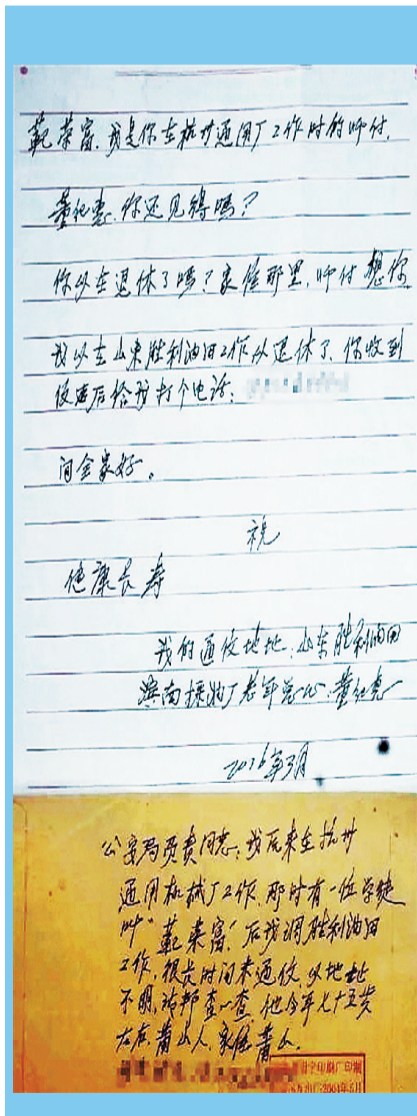 荣富，我是你在杭州通用厂工作时的师付，
董纪惠，你还见得吗？
你以在退休了吗？家住那里，师付想你
我以在山东胜利油田工作以退休了，你收到
信息后给我打个电话：
问全家好。
祝
健康长寿
我的通信地址：山东胜利油田
滨南採油厂老年 董纪惠
2016年3月
公安局负责同志：我原来在杭州
通用机械厂工作，那时有一位学徒
叫“ 荣富”后我调胜利油田
工作，很长时间未通信，以地址
不明，请帮查一查，他今年七十五岁
左右 萧山人，家住萧山。